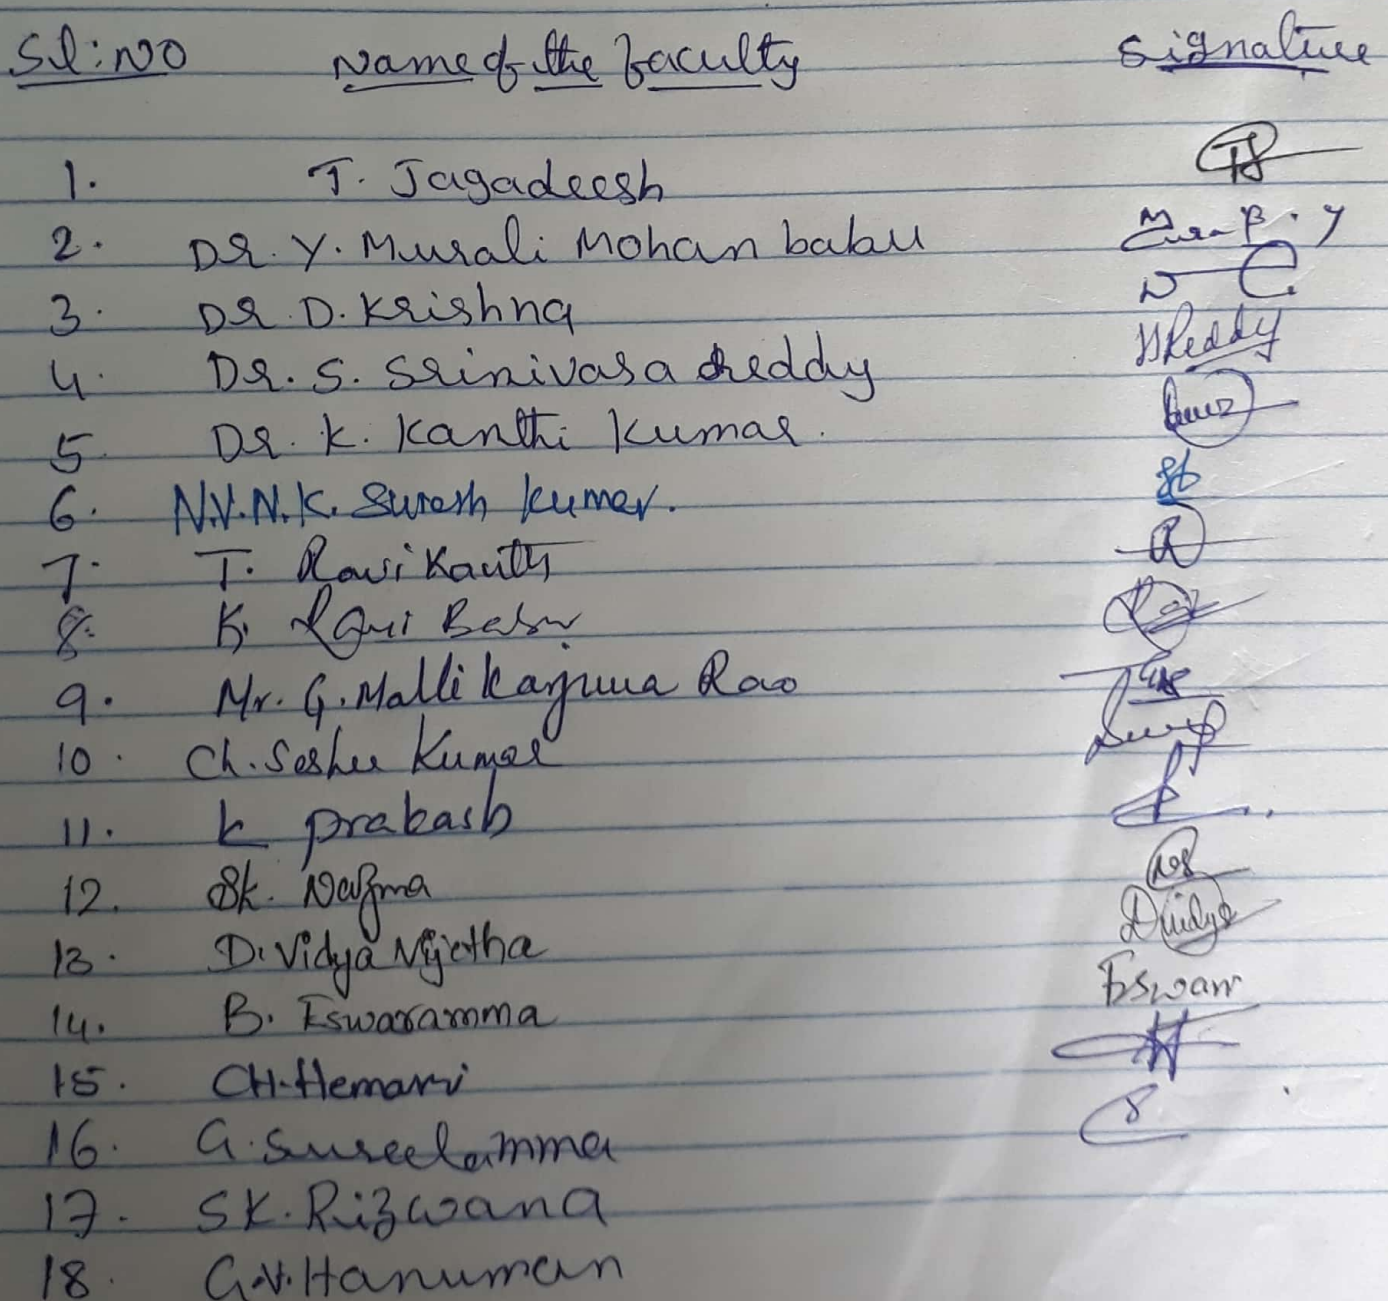 Sl:NO Name of the faculty Signature
1. T. Jagadeesh
2. DR. Y. Murali Mohan babu
3. DR. D. Krishna
4. DR. S. Srinivasa Reddy SReddy
5. DR. K. Kanthi Kumar.
6. N.V.N.K. Suresh Kumar.
7. T. Ravi Kanth
8. K. Ravi Babu
9. Mr. G. Mallikarjuna Rao
10. Ch. Seshu Kumar
11. K prakash
12. Sk. Nazma
13. D. Vidya Vijetha
14. B. Eswaramma Eswar
15. CH. Hemani
16. G. Suseelamma
17. SK. Rizwana
18. G.V. Hanuman